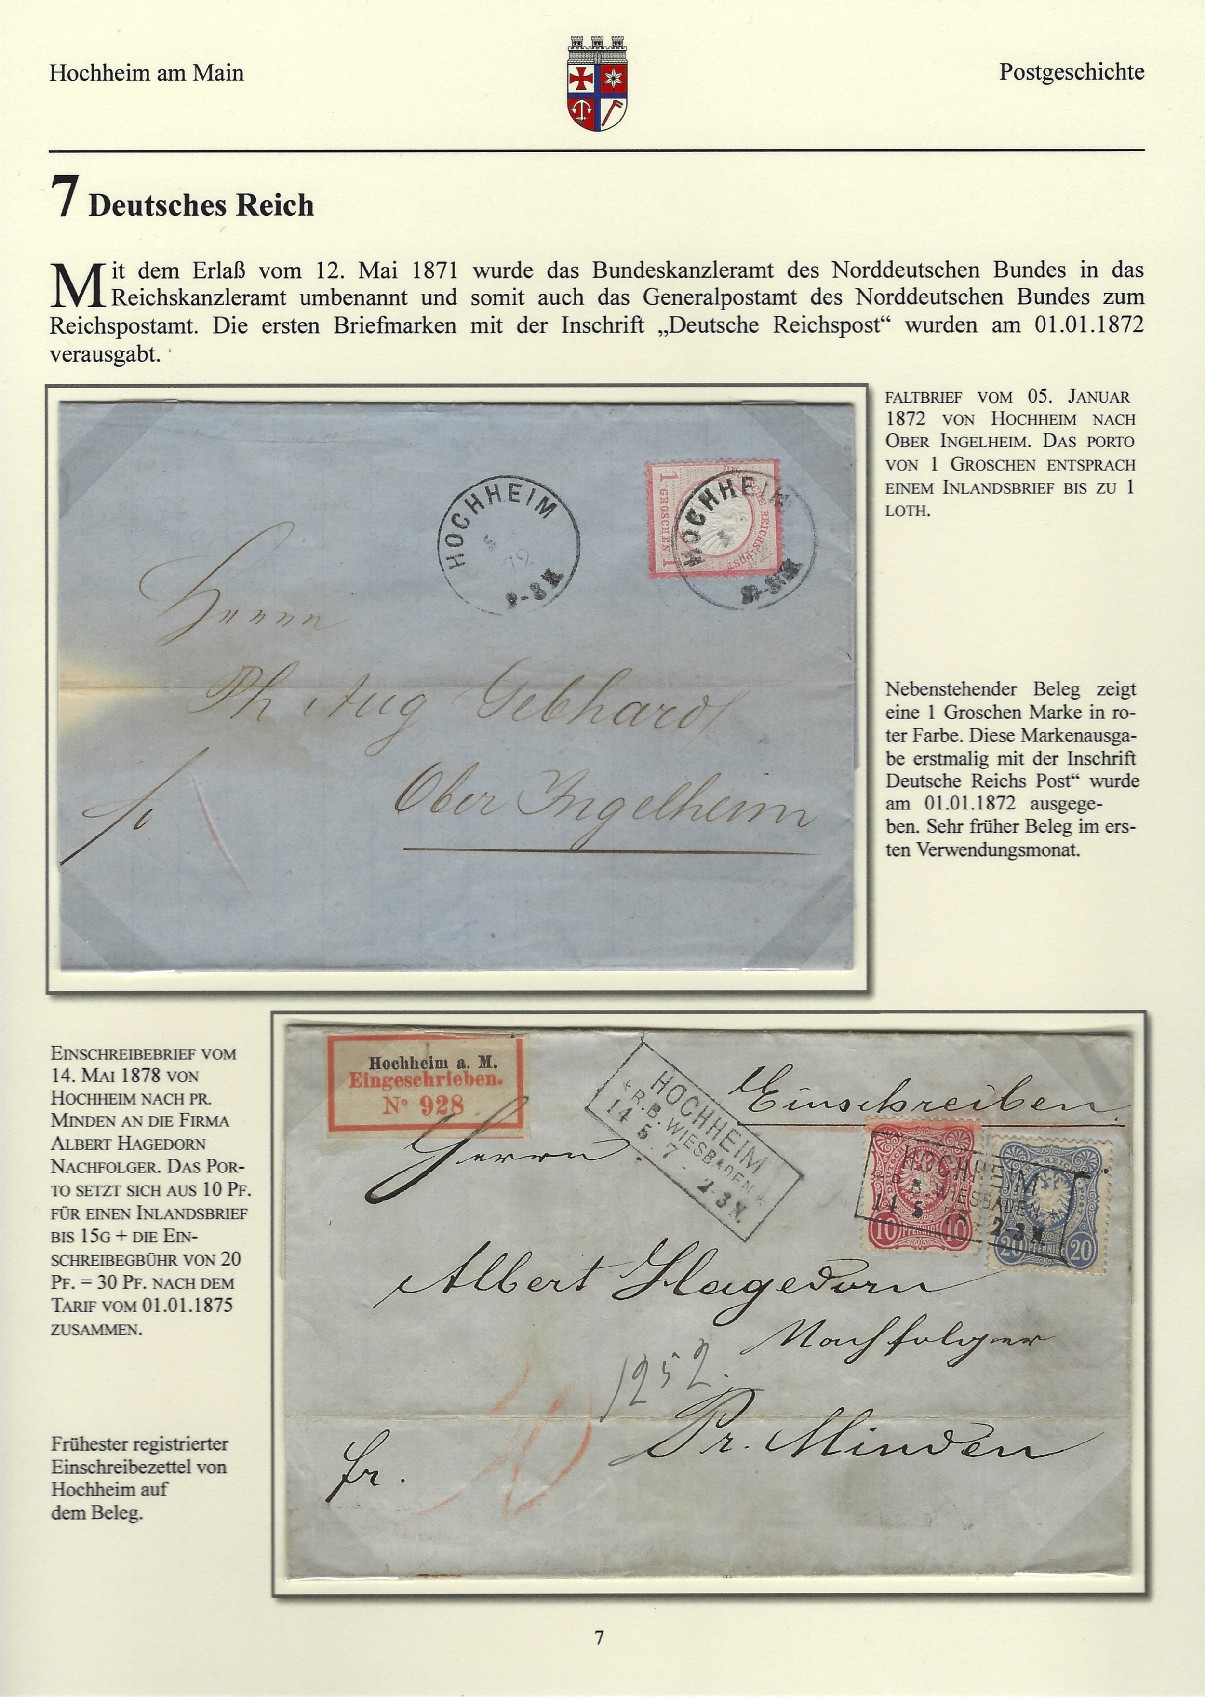 Hochheim am Main
Postgeschichte
7 Deutsches Reich
Mit dem Erlaß vom 12. Mai 1871 wurde das Bundeskanzleramt des Norddeutschen Bundes in das
Reichskanzleramt umbenannt und somit auch das Generalpostamt des Norddeutschen Bundes zum
Reichspostamt. Die ersten Briefmarken mit der Inschrift „Deutsche Reichspost“ wurden am 01.01.1872
verausgabt.
FALTBRIEF VOM 05. JANUAR
1872 VON HOCHHEIM NACH
OBER INGELHEIM. DAS PORTO
VON 1 GROSCHEN ENTSPRACH
EINEM INLANDSBRIEF BIS ZU 1
LOTH.
HOCHHEIM
HOCHHEIM
1 GROSCHEN 1
Herrn
Ph Aug Gebhard
Ober Ingelheim
Nebenstehender Beleg zeigt
eine 1 Groschen Marke in ro-
ter Farbe. Diese Markenausga-
be erstmalig mit der Inschrift
Deutsche Reichs Post“ wurde
am 01.01.1872 ausgege-
ben. Sehr früher Beleg im ers-
ten Verwendungsmonat.
EINSCHREIBEBRIEF VOM
14. MAI 1878 VON
HOCHHEIM NACH PR.
MINDEN AN DIE FIRMA
ALBERT HAGEDORN
NACHFOLGER. DAS POR-
TO SETZT SICH AUS 10 PF.
FÜR EINEN INLANDSBRIEF
BIS 15G + DIE EIN-
SCHREIBEGBÜHR VON 20
PF. = 30 PF. NACH DEM
TARIF VOM 01.01.1875
ZUSAMMEN.
Frühester registrierter
Einschreibezettel von
Hochheim auf
dem Beleg.
Hochheim a. M.
Eingeschrieben.
No 928
HOCHHEIM
* R.B. WIESBADEN *
14 5 7 2-3 N.
Einschreiben.
HOCHHEIM
R.B. WIESBADEN *
14 5 2-3 N
10 PFENNIG 10
20 PFENNIG 20
Herrn
Albert Hagedorn
Nachfolger
1252.
Pr. Minden
fr.
7